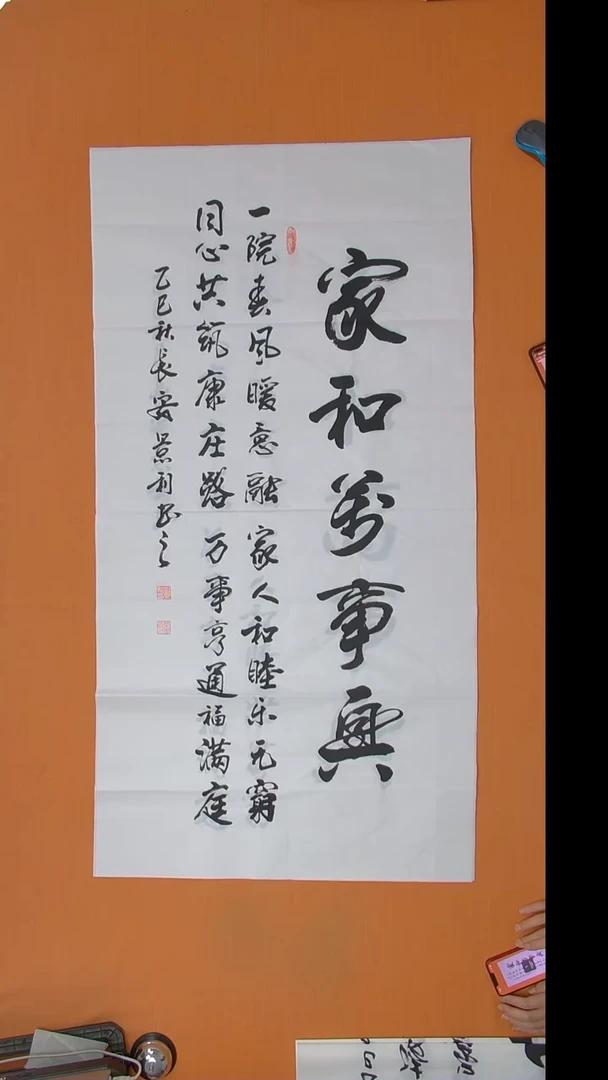 家和萬事興
一院春风暖意融家人和睦乐无窮
同心共筑康庄路万事亨通福满庭
乙巳秋長安景利书之